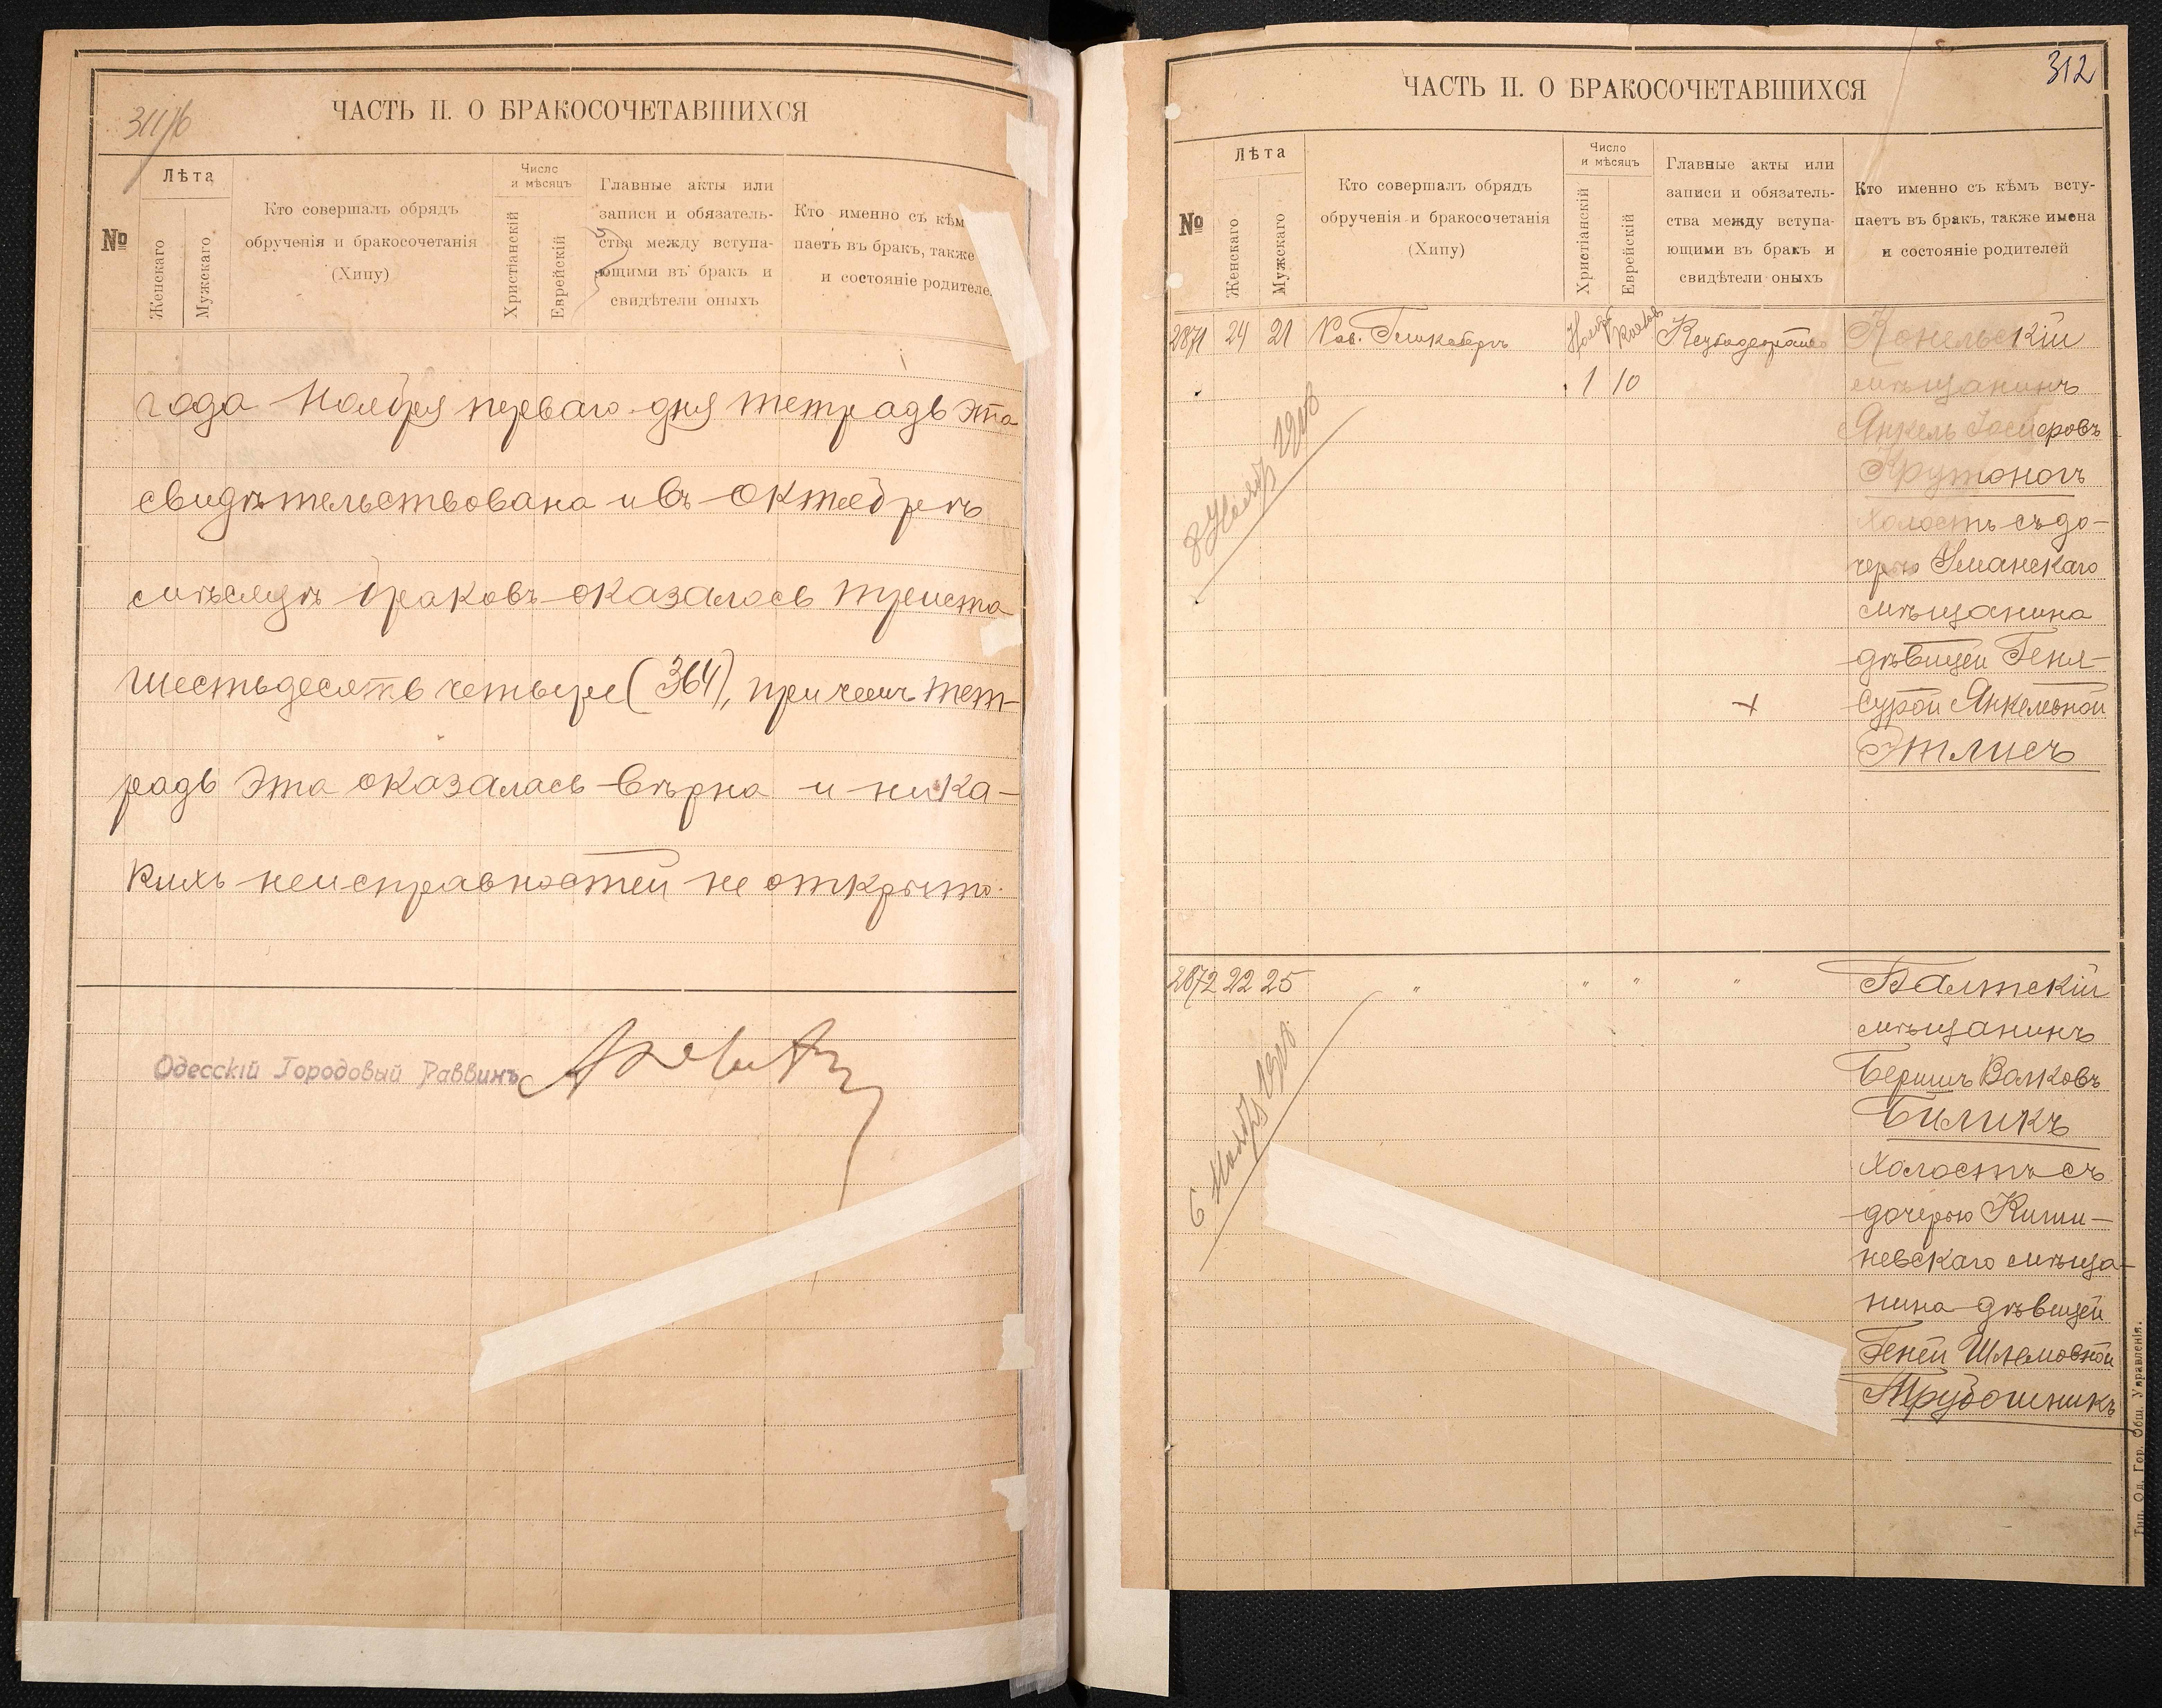 311/б
ЧАСТЬ II. О БРАКОСОЧЕТАВШИХСЯ
№
Лѣта
Женскаго
Мужскаго
Кто совершалъ обрядъ
обрученія и бракосочетанія
(Хипу)
Число
и мѣсяцъ
Христіанскій
Еврейскій
Главные акты или
записи и обязатель-
ства между вступа-
ющими въ бракъ и
свидѣтели оныхъ
Кто именно съ кѣм
паетъ въ бракъ, также
и состояніе родителе
года Ноября перваго дня тетрадь эта
свидѣтельствована и въ Октябрѣ
мѣсяцѣ браковъ оказалось триста
шестьдесятъ четыре (364), при чемъ тет-
радь эта оказалась вѣрна и ника-
кихъ неисправностей не открыто.
Одесскій Городовый Раввинъ
312
ЧАСТЬ II. О БРАКОСОЧЕТАВШИХСЯ
№
Лѣта
Женскаго
Мужскаго
Кто совершалъ обрядъ
обрученія и бракосочетанія
(Хипу)
Число
и мѣсяцъ
Христіанскій
Еврейскій
Главные акты или
записи и обязатель-
ства между вступа-
ющими въ бракъ и
свидѣтели оныхъ
Кто именно съ кѣмъ всту-
паетъ въ бракъ, также имена
и состояніе родителей
2871 24 21 Рав. Ноября 1 10
8 Ноября 1908
Конельскій
мѣщанинъ
Янкель Іосифовъ
Крутоногъ
холостъ съ до-
черью Уманскаго
мѣщанина
дѣвицей Геня-
Сурой Янкелевной
Этлисъ
2872 22 25 " " " "
6 Ноября 1908
Балтскій
мѣщанинъ
Беришъ Волковъ
Биликъ
холостъ съ
дочерью Киши-
невскаго мѣща-
нина дѣвицей
Геней Шлемовной
Трубошникъ
Тип. Од. Гор. Общ. Управленія.